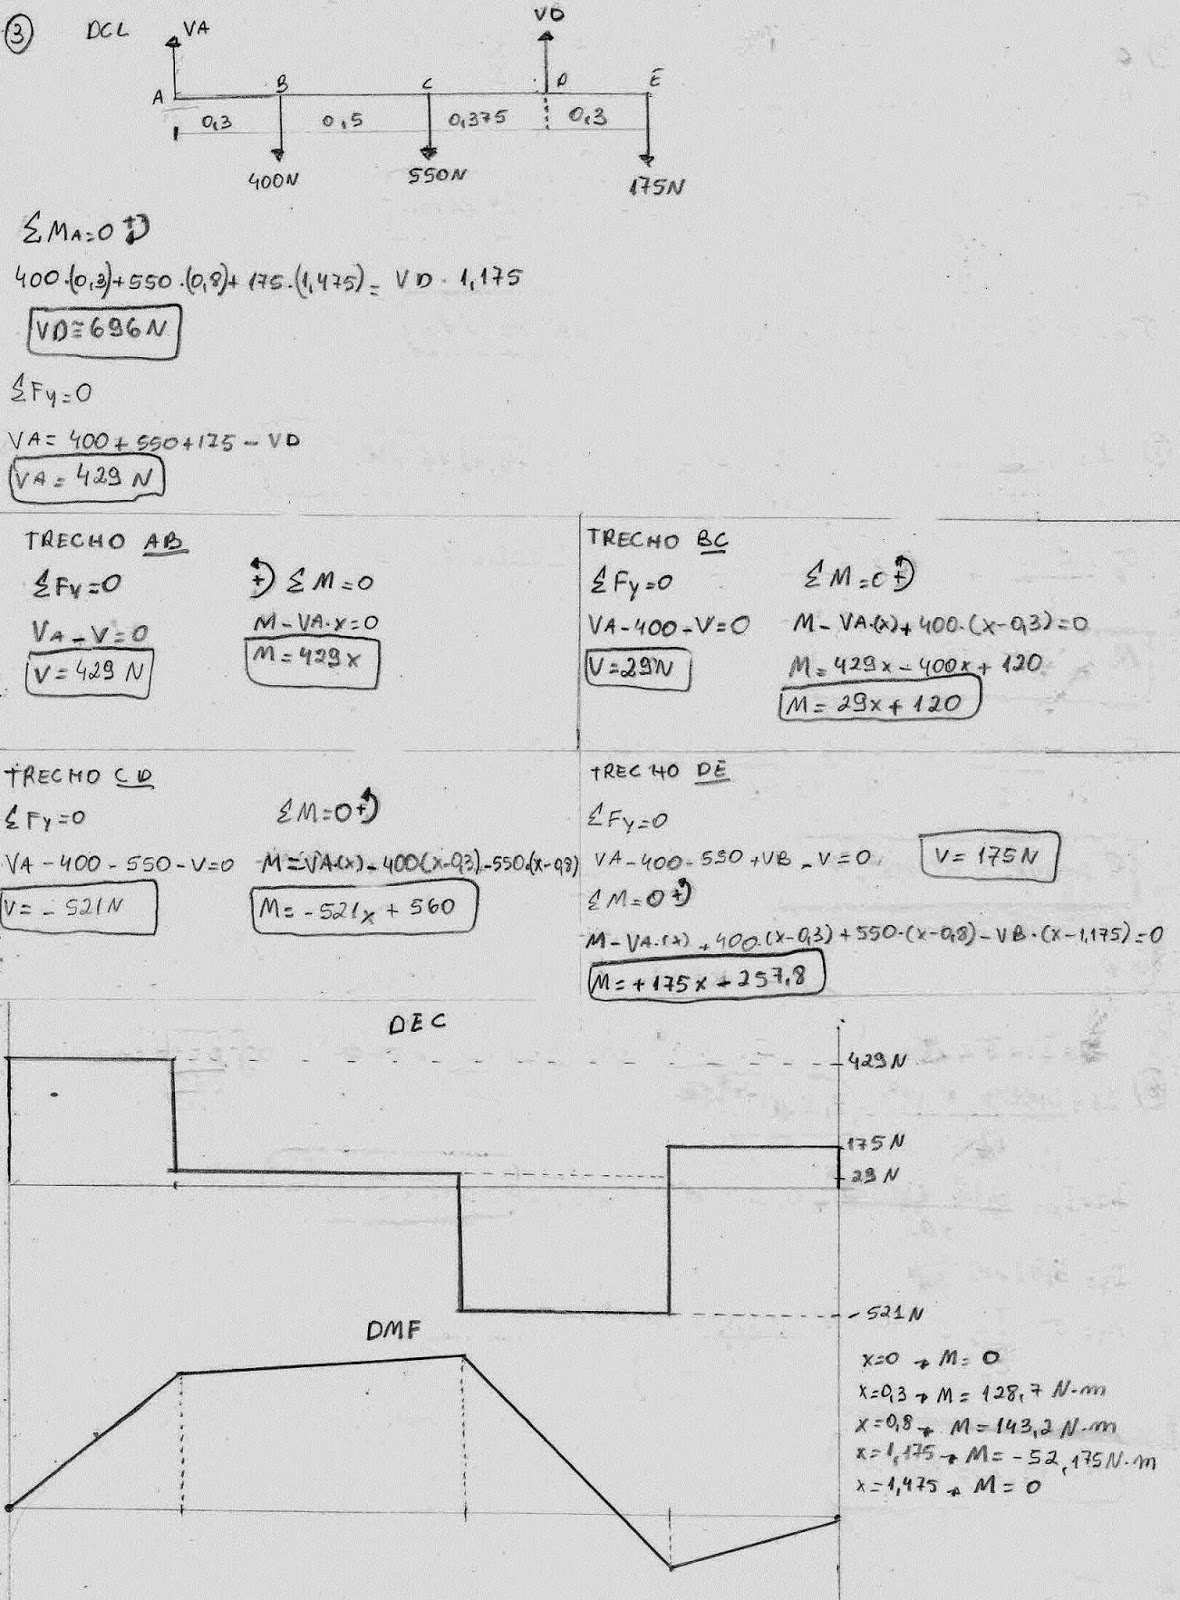 3 DCL VA VD
A B C D E
0,3 0,5 0,375 0,3
400N 550N 175N
ΣMA=0 +
400·(0,3)+550·(0,8)+175·(1,475)= VD·1,175
VD≅696N
ΣFy=0
VA= 400+550+175-VD
VA= 429 N
TRECHO AB
ΣFy=0 + ΣM=0
VA-V=0 M-VA·x=0
V=429 N M=429x
TRECHO BC
ΣFy=0 ΣM=0+
VA-400-V=0 M-VA·(x)+400·(x-0,3)=0
V=29N M=429x-400x+120
M=29x+120
TRECHO CD
ΣFy=0 ΣM=0+
VA-400-550-V=0 M=VA(x)-400(x-0,3)-550·(x-0,8)
V=-521N M=-521x+560
TRECHO DE
ΣFy=0
VA-400-550+VB-V=0 V=175N
ΣM=0+
M-VA·(x)+400·(x-0,3)+550·(x-0,8)-VB·(x-1,175)=0
M=+175x-257,8
DEC
429N
175N
29N
-521N
DMF
x=0 → M= 0
x=0,3 → M= 128,7 N·m
x=0,8 → M=143,2 N·m
x=1,175 → M=-52,175N·m
x=1,475 → M= 0